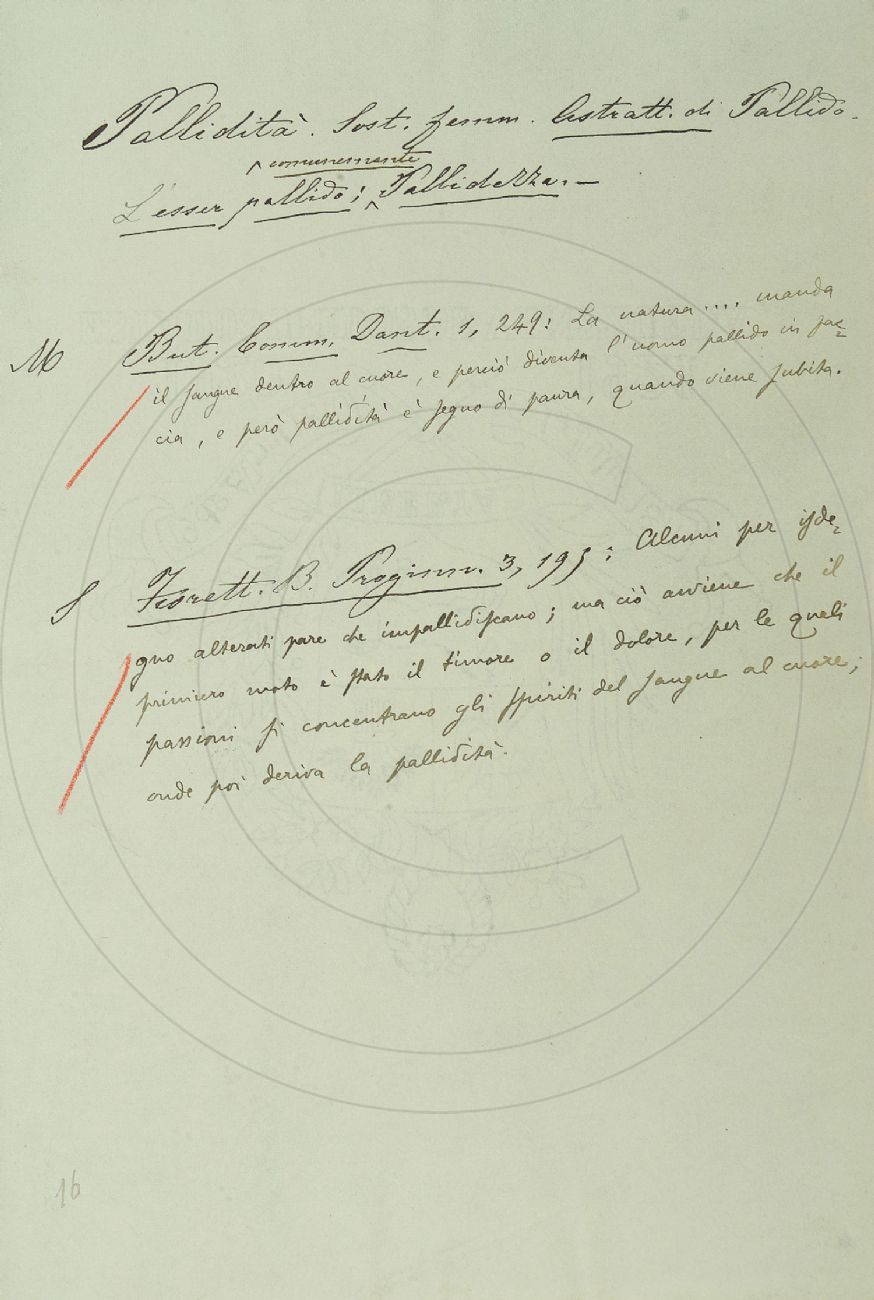 Pallidità. Sost. femm. Astratt. di Pallido.
comunemente
L'esser pallido; Pallidezza. —
M But. Comm. Dant. 1, 249: La natura .... manda
il sangue dentro al cuore, e perciò diventa l'uomo pallido in fac=
cia, e però pallidità è segno di paura, quando viene subita.
S Fiorett. B. Proginn. 3, 193: Alcuni per isde=
gno alterati pare che impallidiscano; ma ciò avviene che il
primiero moto è stato il timore o il dolore, per le quali
passioni si concentrano gli spiriti del sangue al cuore;
onde poi deriva la pallidità.
16